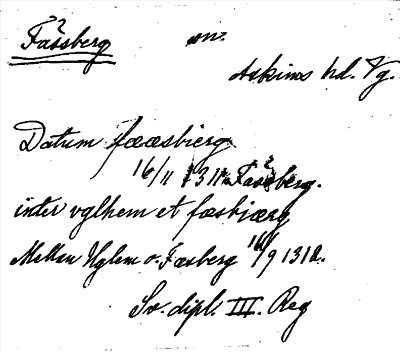 Fässberg sn.
Askims hd. Vg.
Datum fææsbierg
16/11 1311 Fässberg.
inter vglhem et fæsbiærg
Mellan Uglem o. Fæsberg 16/9 1312.
Sv. dipl. III. Reg